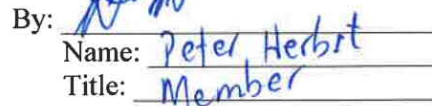 By:
Name: Peter Herbst
Title: Member